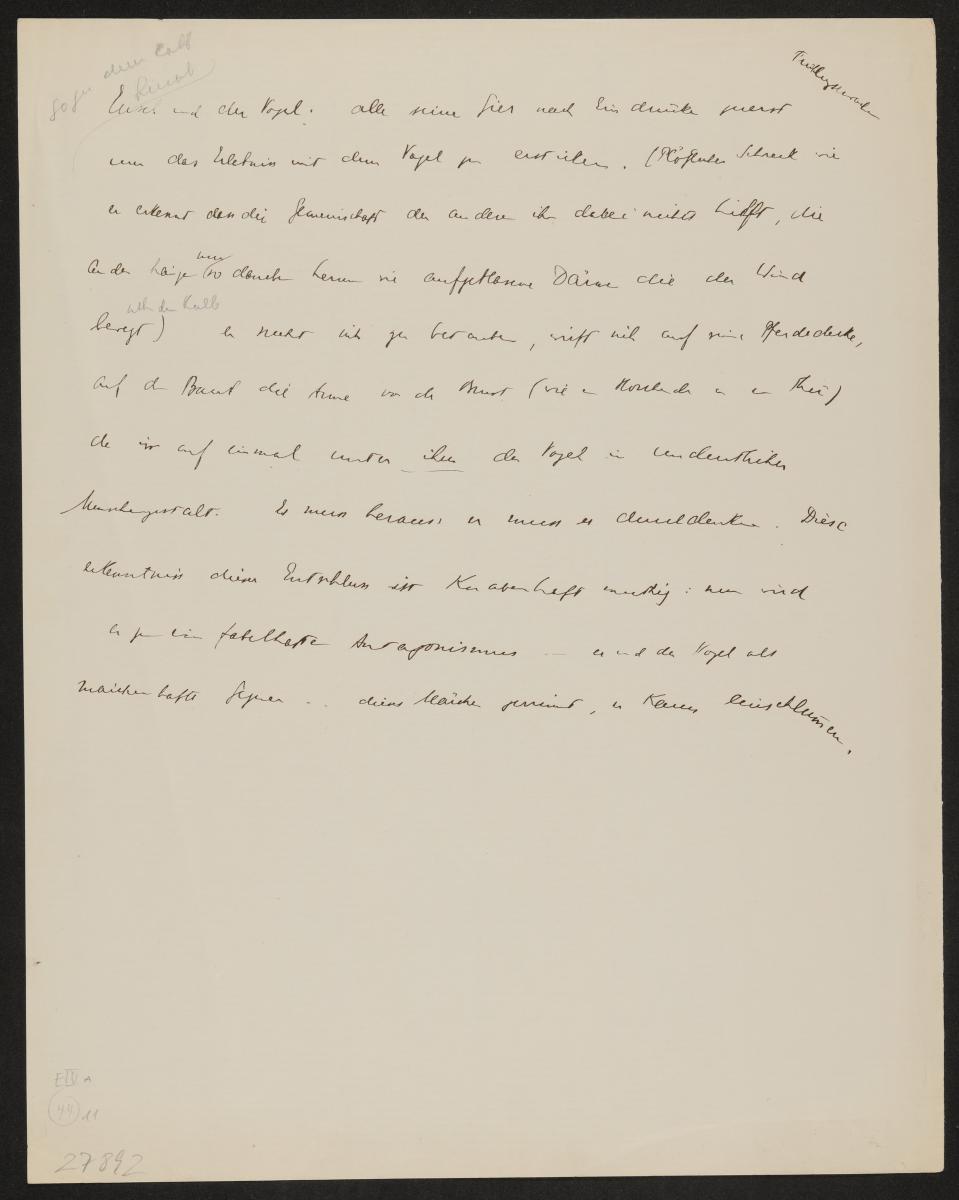 und der Vogel. alle seine Gier nach Eindrücken zuerst
um das Erlebnis mit dem Vogel zu ersticken. (Plötzlicher Schreck wie
er erkennt dass die Gemeinschaft der anderen ihm dabei nichts hilft, die
anderen nur so daneben wie aufgeblasene Därme die der Wind
bewegt) er sucht sich zu betäuben, wirft sich auf seine Pferdedecke,
auf den Bauch die Arme vor der Brust (wie ein in ein)
da ist auf einmal unter ihm der Vogel in undeutlicher
Menschengestalt. Es muss heraus: er muss es durchdenken. Diese
Erkenntniss dieser Entschluss ist Knabenhaft mutig: nun wird
es zu ein fabelhafter Antagonismus — er und der Vogel als
märchenhafte Gegner .. dieses Märchen gerinnt, er kann einschlummern.
E IV A
44 11
27892